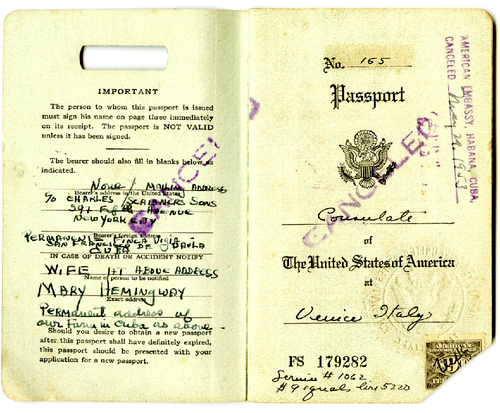 IMPORTANT
The person to whom this passport is issued
must sign his name on page three immediately
on its receipt. The passport is NOT VALID
unless it has been signed.
The bearer should also fill in blanks below as
indicated.
None / MAILING ADDRESS
Bearer's address in the United States
c/o CHARLES SCRIBNERS SONS
597 Fifth AVENUE
NEW YORK CITY
Bearer's foreign address
PERMANENTE FINCA Vigia
SAN FRANCISCO DE PAULA
CUBA
IN CASE OF DEATH OR ACCIDENT NOTIFY
WIFE AT ABOVE ADDRESS
Name of person to be notified
MARY HEMINGWAY
Exact address
Permanent address of
our Farm in Cuba as above
Should you desire to obtain a new passport
after this passport shall have definitely expired,
this passport should be presented with your
application for a new passport.
CANCELED
No. 165
Passport
AMERICAN EMBASSY, HABANA, CUBA,
CANCELED May 29 1953
CANCELED
Consulate
of
The United States of America
at
Venice Italy
FS 179282
Service # 1062